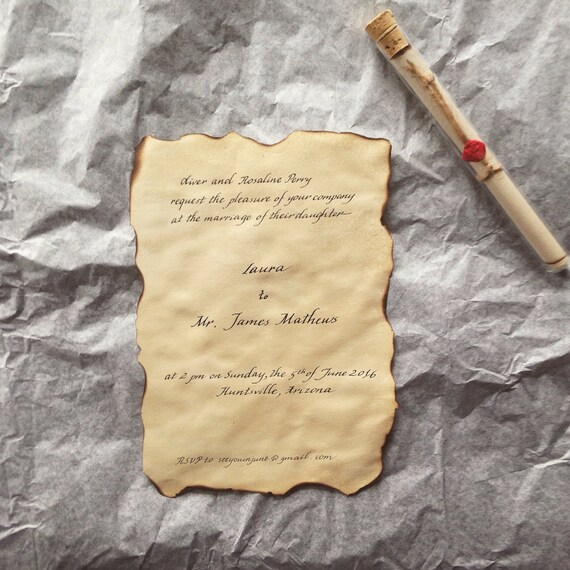 Oliver and Rosaline Perry
request the pleasure of your company
at the marriage of their daughter
Laura
to
Mr. James Mathews
at 2 pm on Sunday, the 5th of June 2016
Huntsville, Arizona
RSVP to seeyouinjune@gmail.com